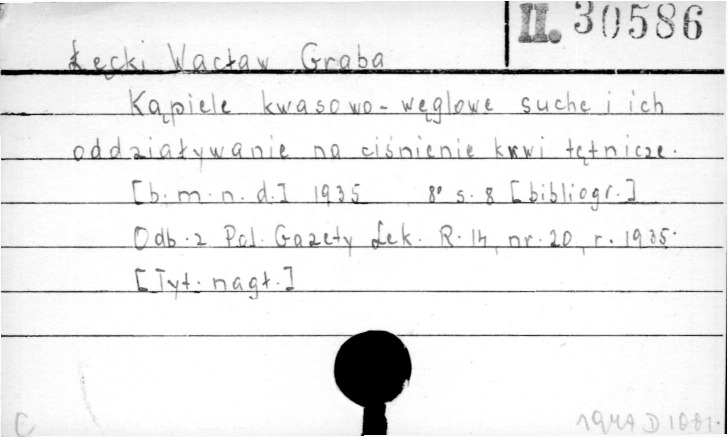 II. 30586
Łęcki Wacław Graba
Kąpiele kwasowo-węglowe suche i ich
oddziaływanie na ciśnienie krwi tętnicze.
[b. m. n. d.] 1935 8° s. 8 [bibliogr.]
Odb. z Pol. Gazety Lek. R. 14, nr. 20, r. 1935.
[Tyt. nagł.]
C